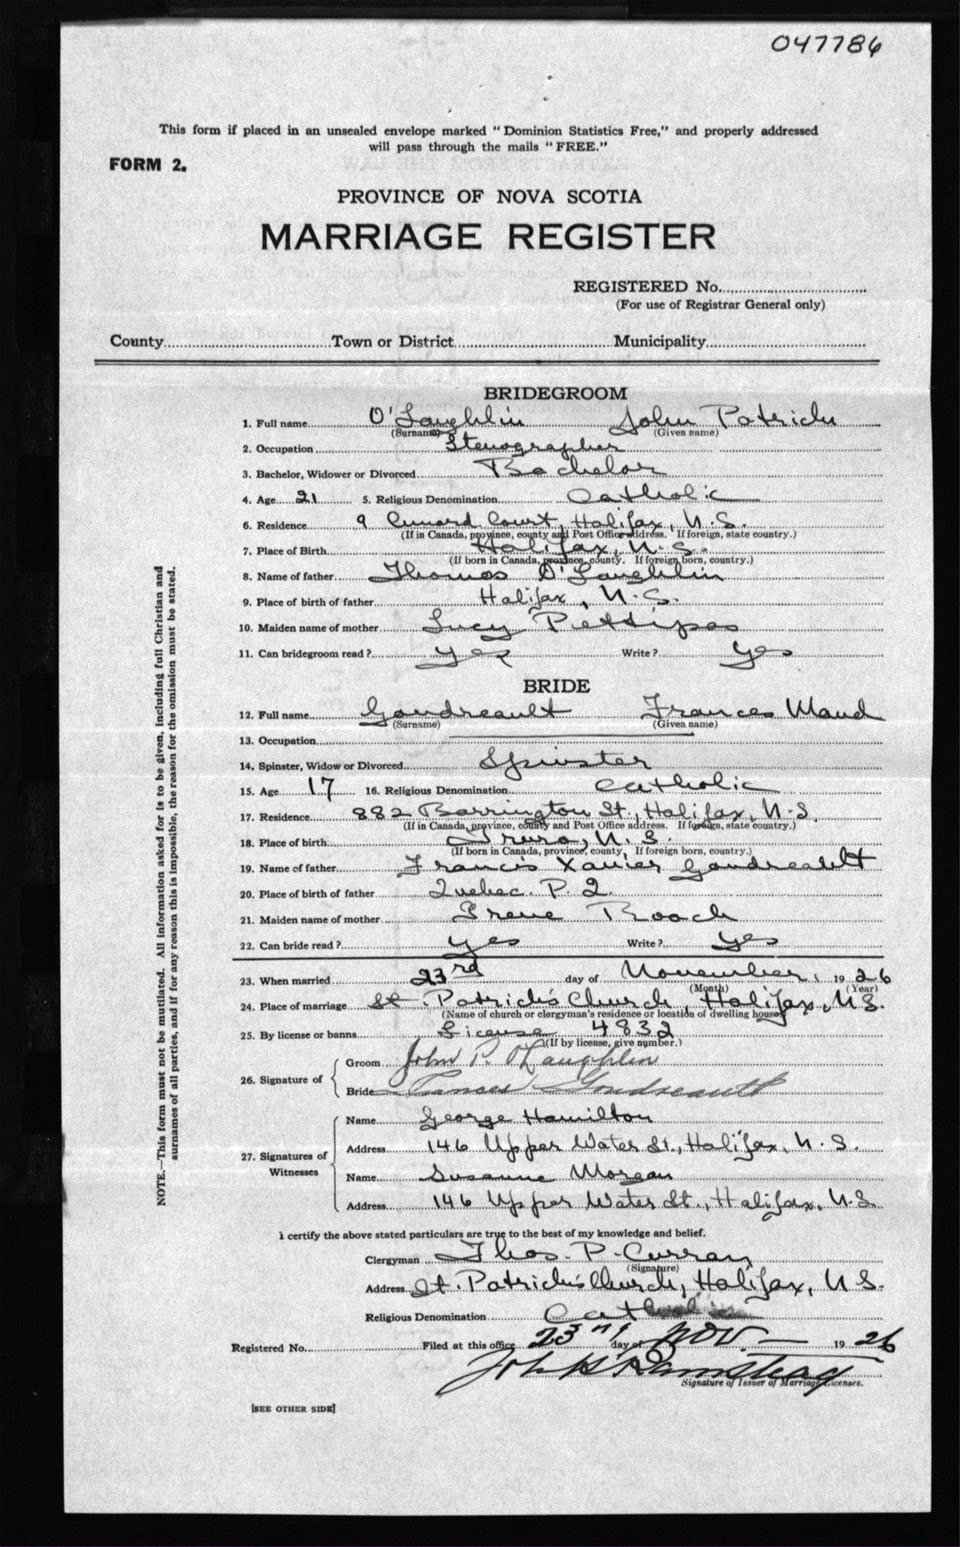 047786
This form if placed in an unsealed envelope marked "Dominion Statistics Free," and properly addressed
will pass through the mails "FREE."
FORM 2.
PROVINCE OF NOVA SCOTIA
MARRIAGE REGISTER
REGISTERED No.
(For use of Registrar General only)
County Town or District Municipality
BRIDEGROOM
1. Full name O'Laughlin John Patrick
(Surname) (Given name)
2. Occupation Stenographer
3. Bachelor, Widower or Divorced Bachelor
4. Age 21 5. Religious Denomination Catholic
6. Residence 9 Cunard Court, Halifax, N.S.
(If in Canada, province, county and Post Office address. If foreign, state country.)
7. Place of Birth Halifax, N.S.
(If born in Canada, province, county. If foreign born, country.)
8. Name of father Thomas O'Laughlin
9. Place of birth of father Halifax, N.S.
10. Maiden name of mother Lucy Pettipas
11. Can bridegroom read? yes Write? yes
BRIDE
12. Full name Goudreault Frances Maud
(Surname) (Given name)
13. Occupation
14. Spinster, Widow or Divorced Spinster
15. Age 17 16. Religious Denomination Catholic
17. Residence 882 Barrington St., Halifax, N.S.
(If in Canada, province, county and Post Office address. If foreign, state country.)
18. Place of birth Truro, N.S.
(If born in Canada, province, county, If foreign born, country.)
19. Name of father Francis Xavier Goudreault
20. Place of birth of father Quebec. P.Q.
21. Maiden name of mother Irene Roach
22. Can bride read? yes Write? yes
23. When married 23rd day of November, 1926
(Month) (Year)
24. Place of marriage St Patrick's Church, Halifax, N.S.
(Name of church or clergyman's residence or location of dwelling house)
25. By license or banns License 4832
(If by license, give number.)
26. Signature of Groom John P. O'Laughlin
Bride Frances Goudreault
27. Signatures of Witnesses Name George Hamilton
Address 146 Upper Water St., Halifax, N.S.
Name Susanne Morgan
Address 146 Upper Water St., Halifax, N.S.
I certify the above stated particulars are true to the best of my knowledge and belief.
Clergyman Thos. P. Curran
(Signature)
Address St. Patrick's Church, Halifax, N.S.
Religious Denomination Catholic
Registered No. Filed at this office 23rd day of Nov. 1926
Signature of Issuer of Marriage Licenses.
[SEE OTHER SIDE]
NOTE.—This form must not be mutilated. All information asked for is to be given, including full Christian and
surnames of all parties, and if for any reason this is impossible, the reason for the omission must be stated.